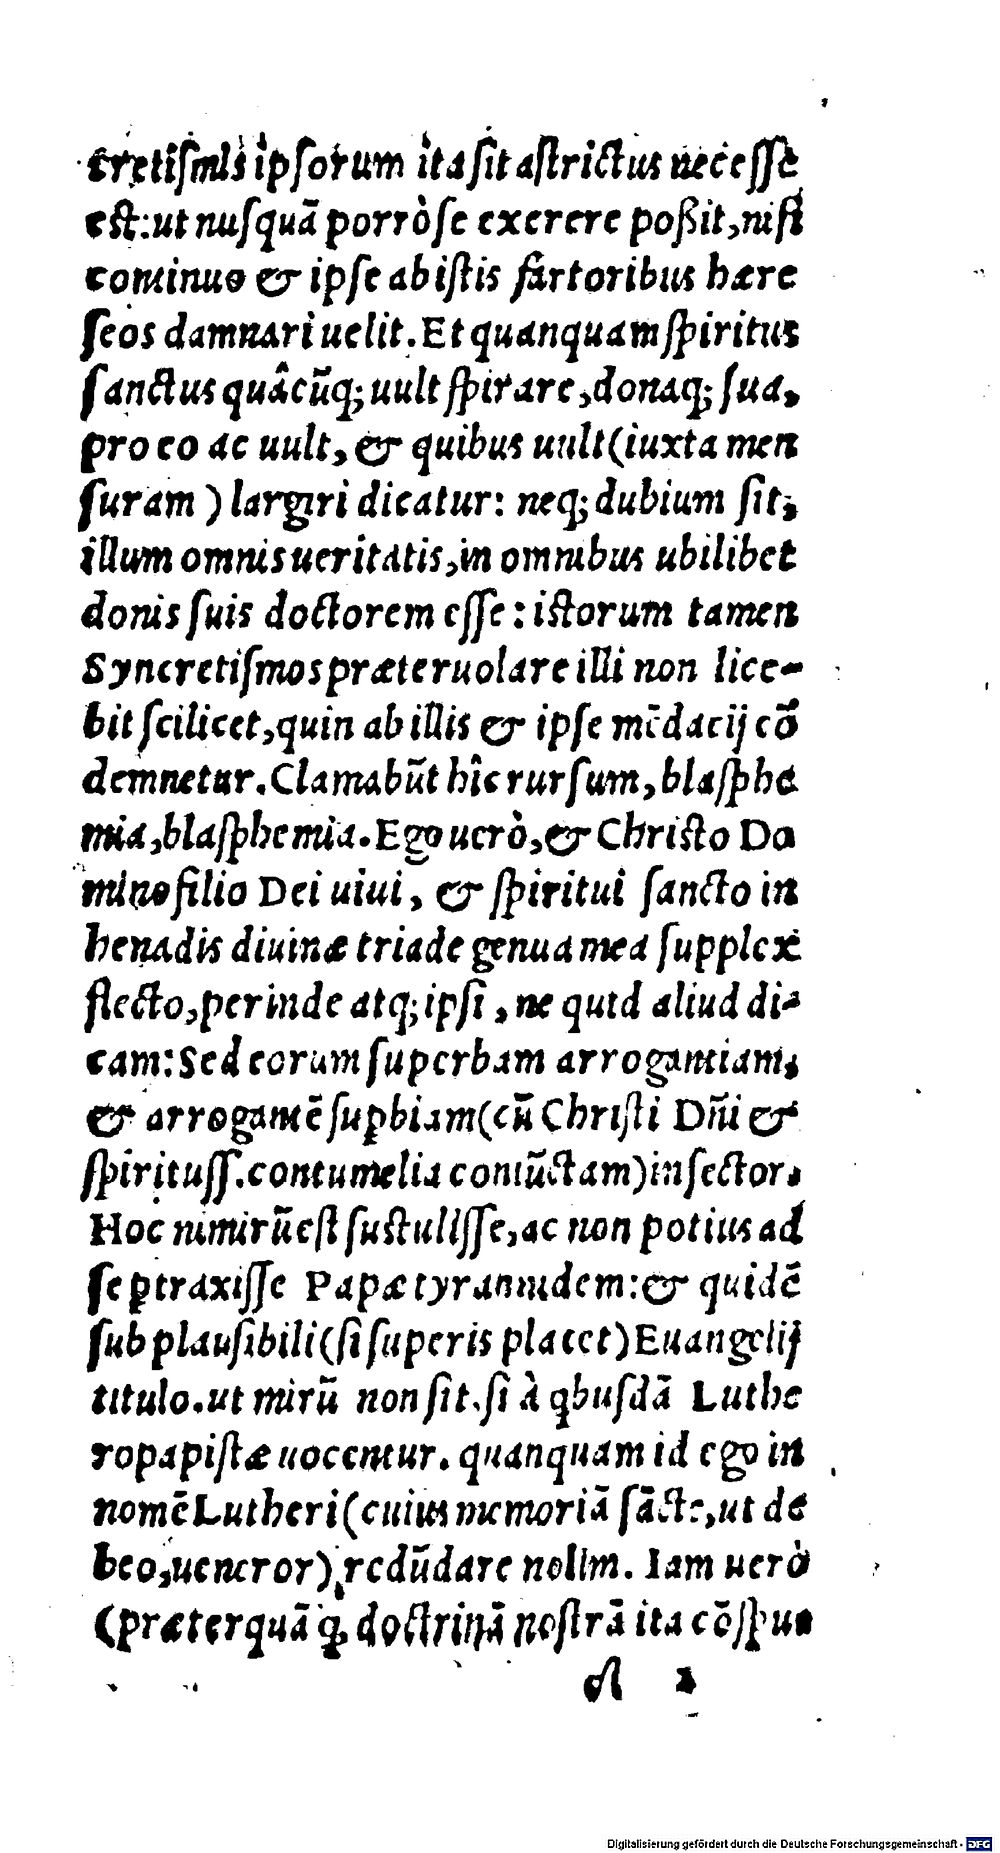 cretiſmis ipſorum ita ſit aſtrictus neceſſe
eſt: ut nuſquã porrò ſe exerere poßit, niſi
cominuo & ipſe ab iſtis fartoribus hære
ſeos damnari uelit. Et quanquam ſpiritus
ſanctus quâcũq; uult ſpirare, donaq; ſua,
pro eo ac uult, & quibus uult (iuxta men
ſuram) largiri dicatur: neq; dubium ſit,
illum omnis ueritatis, in omnibus ubilibet
donis ſuis doctorem eſſe: iſtorum tamen
Syncretiſmos præteruolare illi non lice-
bit ſcilicet, quin ab illis & ipſe mẽdacij cõ
demnetur. Clamabũt hîc rurſum, blaſphe
mia, blaſphemia. Ego uerò, & Chriſto Do
mino filio Dei uiui, & ſpiritui ſancto in
henadis diuinæ triade genua mea ſupplex
flecto, perinde atq; ipſi, ne quid aliud di-
cam: Sed eorum ſuperbam arrogantiam,
& arrogantẽ ſuꝑbiam (cũ Chriſti Dñi &
ſpiritusſ. contumelia coniũctam) inſector.
Hoc nimirũ eſt ſuſtuliſſe, ac non potius ad
ſe ꝑtraxiſſe Papæ tyrannidem: & quidẽ
ſub plauſibili (ſi ſuperis placet) Euangelij
titulo. ut mirũ non ſit. ſi à qbuſdã Luthe
ropapiſtæ uocentur. quanquam id ego in
nomẽ Lutheri (cuius memoriã ſãctè, ut de
beo, ueneror) redũdare nolim. Iam uerò
(præterquã ꝙ doctrinã noſtrã ita cõſpue
2
Digitalisierung gefördert durch die Deutsche Forschungsgemeinschaft - DFG